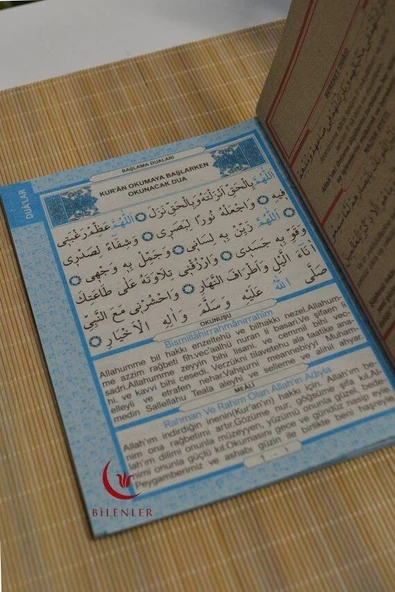 DUALAR
BAŞLAMA DUALARI
KUR'ÂN OKUMAYA BAŞLARKEN
OKUNACAK DUA
اَللّٰهُمَّ بِالْحَقِّ اَنْزَلْتَهُ وَبِالْحَقِّ نَزَلَ اَللّٰهُمَّ عَظِّمْ رَغْبَتِى
فِيهِ وَاجْعَلْهُ نُورًا لِبَصَرِى وَشِفَاءً لِصَدْرِى
اَللّٰهُمَّ زَيِّنْ بِهِ لِسَانِى وَجَمِّلْ بِهِ وَجْهِى
وَقَوِّ بِهِ جَسَدِى وَارْزُقْنِى تِلَاوَتَهُ عَلَى طَاعَتِكَ
اٰنَاءَ الَّيْلِ وَاَطْرَافَ النَّهَارِ وَاحْشُرْنِى مَعَ النَّبِىِّ
صَلَّى اللّٰهُ عَلَيْهِ وَسَلَّمَ وَاٰلِهِ الْاَخْيَارِ
OKUNUŞU
Bismillâhirrahmânirrahîm
Allahumme bil hakkı enzeltehû ve bilhakkı nezel.Allahum-
me azzim rağbetî fîh.vec'alhü nuran li basarî.Ve şifaen li
sadrî.Allahumme zeyyin bihî lisanî. ve cemmil bihî vec-
hî. ve kavvi bihî cesedî. Verzüknî tilavetehu ala taatike anae-
elleyli ve etrafen nehar.Vahşurnî meannebiyyi Muham-
medin Sallellahü Teala aleyhi ve selleme ve alihil ahyar.
MEALİ
Rahman Ve Rahim Olan Allah'ın Adıyla
Allah'ım indirdiğin inenin(Kur'ân'ın) hakkı için, Allah'ım be-
nim ona rağbetimi artır.Gözüme nur, göğsüme şifa kıl.Al-
lah'ım dilimi onunla müzeyyen, yüzümü onunla güzel, bede-
nimi onunla güçlü kıl.Okumasını gece ve gündüz nasip eyle.
Peygamberimiz ve ashabı güzin ile birlikte beni haşreyle.
1
BİLENLER